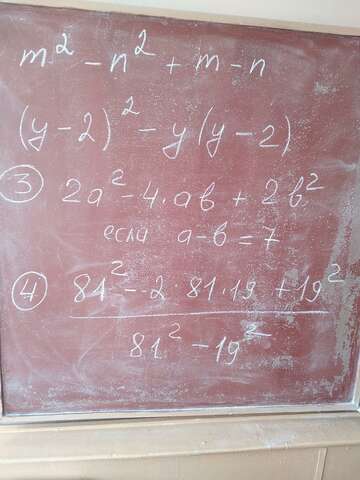 m² - n² + m - n
(y - 2)² - y (y - 2)
③ 2a² - 4·ab + 2b²
если a - b = 7
④ 81² - 2·81·19 + 19²
81² - 19²